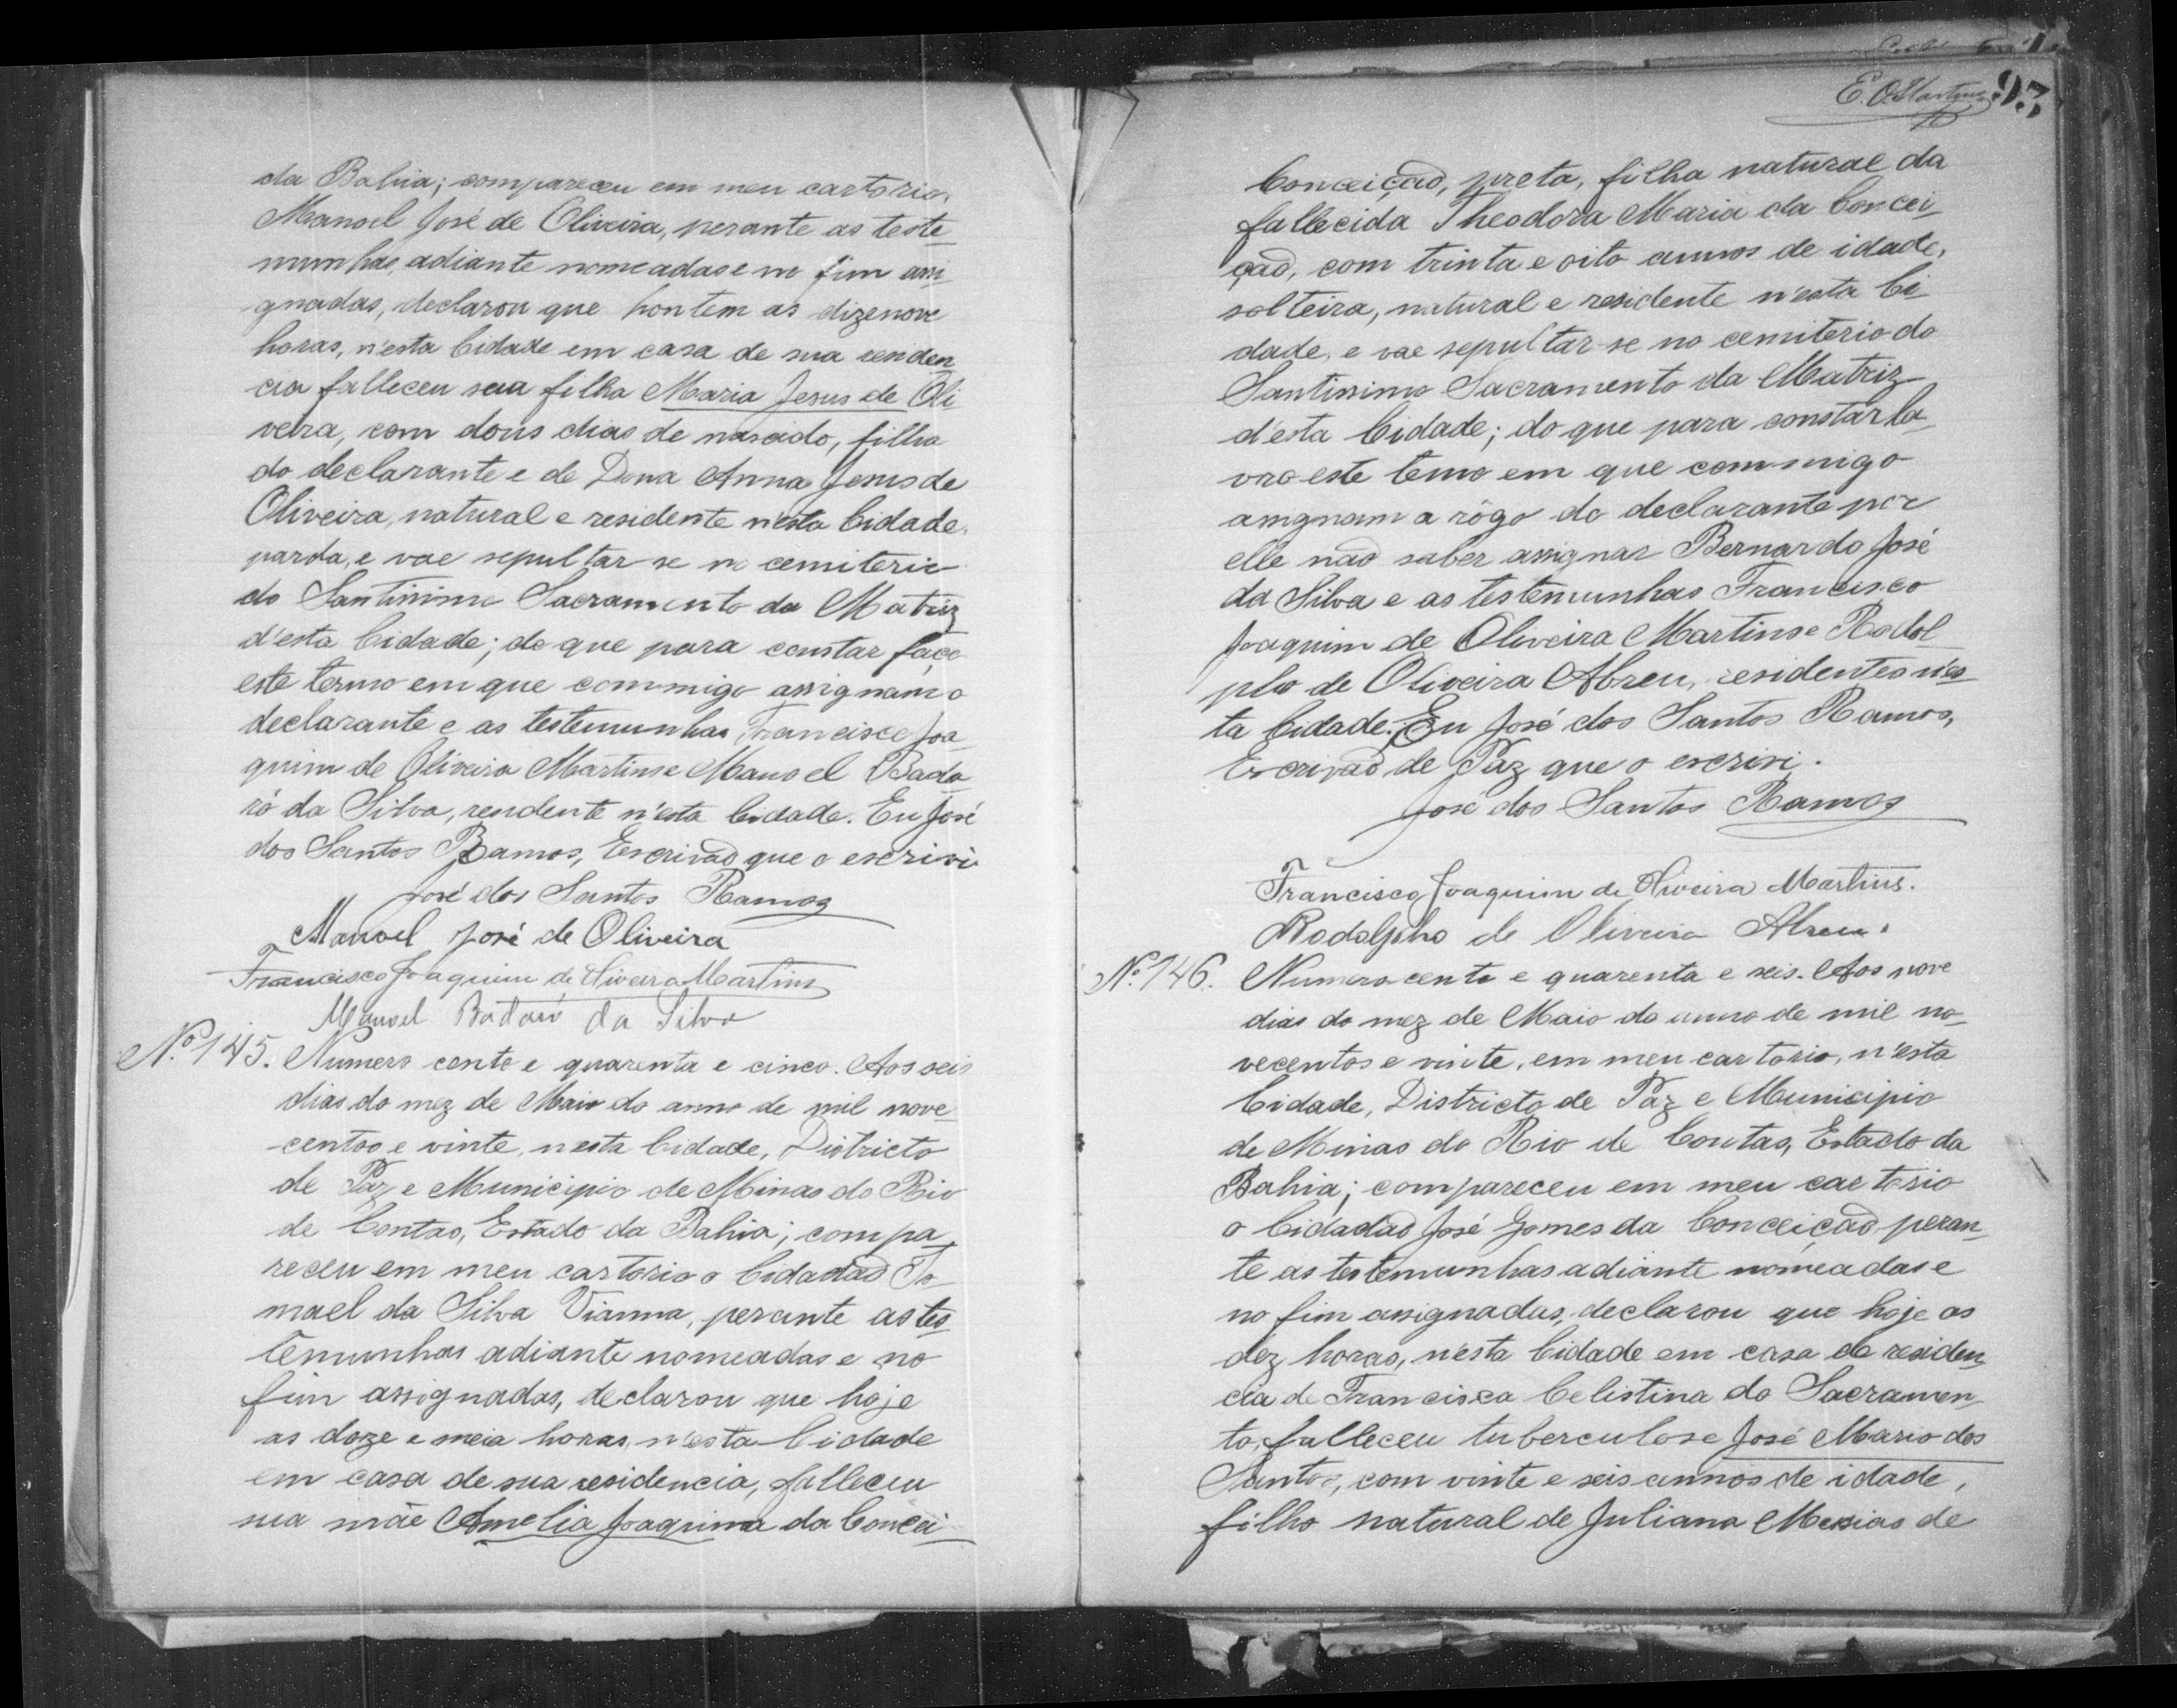 da Bahia; compareceu em meu cartorio,
Manoel José de Oliveira, perante as teste-
munhas adiante nomeadas e no fim assi-
gnadas, declarou que hontem as dizenove
horas, n'esta Cidade em casa de sua residen-
cia falleceu sua filha Maria Jesus de Oli-
veira, com dous dias de nascido, filha
do declarante e de Dona Anna Jesus de
Oliveira, natural e residente n'esta Cidade,
parda, e vae sepultar-se no cemiterio
do Santissimo Sacramento da Matriz
d'esta Cidade; do que para constar faço
este termo em que commigo assignam o
declarante e as testemunhas Francisco Joa-
quim de Oliveira Martins e Manoel Bada-
ró da Silva, rendente n'esta Cidade. Eu José
dos Santos Ramos, Escrivão que o escrivi
José dos Santos Ramos
Manoel José de Oliveira
Francisco Joaquim de Oliveira Martins
Manoel Badaró da Silva
Nº 145. Numero cento e quarenta e cinco. Aos seis
dias do mez de Maio do anno de mil nove-
centos e vinte, nesta Cidade, Districto
de Paz e Municipio de Minas do Rio
de Contas, Estado da Bahia; compa-
receu em meu cartorio o Cidadão Is-
mael da Silva Vianna, perante as tes-
temunhas adiante nomeadas e no
fim assignadas, declarou que hoje
as doze e meia horas, n'esta Cidade
em casa de sua residencia, falleceu
sua mãe Amelia Joaquina da Concei-
E. O. Martins 95
Conceição, preta, filha natural da
fallecida Theodora Maria da Concei-
ção, com trinta e oito annos de idade,
solteira, natural e residente n'esta Ci-
dade, e vae sepultar-se no cemiterio do
Santissimo Sacramento da Matriz
d'esta Cidade; do que para constar la-
vro este temo em que commigo
assignam a rôgo do declarante por
elle não saber assignar Bernardo José
da Silva e as testemunhas Francisco
Joaquim de Oliveira Martins e Rodol-
pho de Oliveira Abreu, residentes n'es-
ta Cidade. Eu José dos Santos Ramos,
Escrivão de Paz que o escrivi.
José dos Santos Ramos
Francisco Joaquim de Oliveira Martins.
Rodolpho de Oliveira Abreu.
Nº 146. Numero cento e quarenta e seis. Aos nove
dias do mez de Maio do anno de mil no-
vecentos e vinte, em meu cartorio, n'esta
Cidade, Districto de Paz e Municipio
de Minas do Rio de Contas, Estado da
Bahia; compareceu em meu cartorio
o Cidadão José Gomes da Conceição peran-
te as testemunhas adiante nomeadas e
no fim assignadas, declarou que hoje as
dez horas, n'esta Cidade em casa de residen-
cia de Francisca Celistina do Sacramen-
to, falleceu tuberculose José Mario dos
Santos, com vinte e seis annos de idade,
filho natural de Juliana Messias de